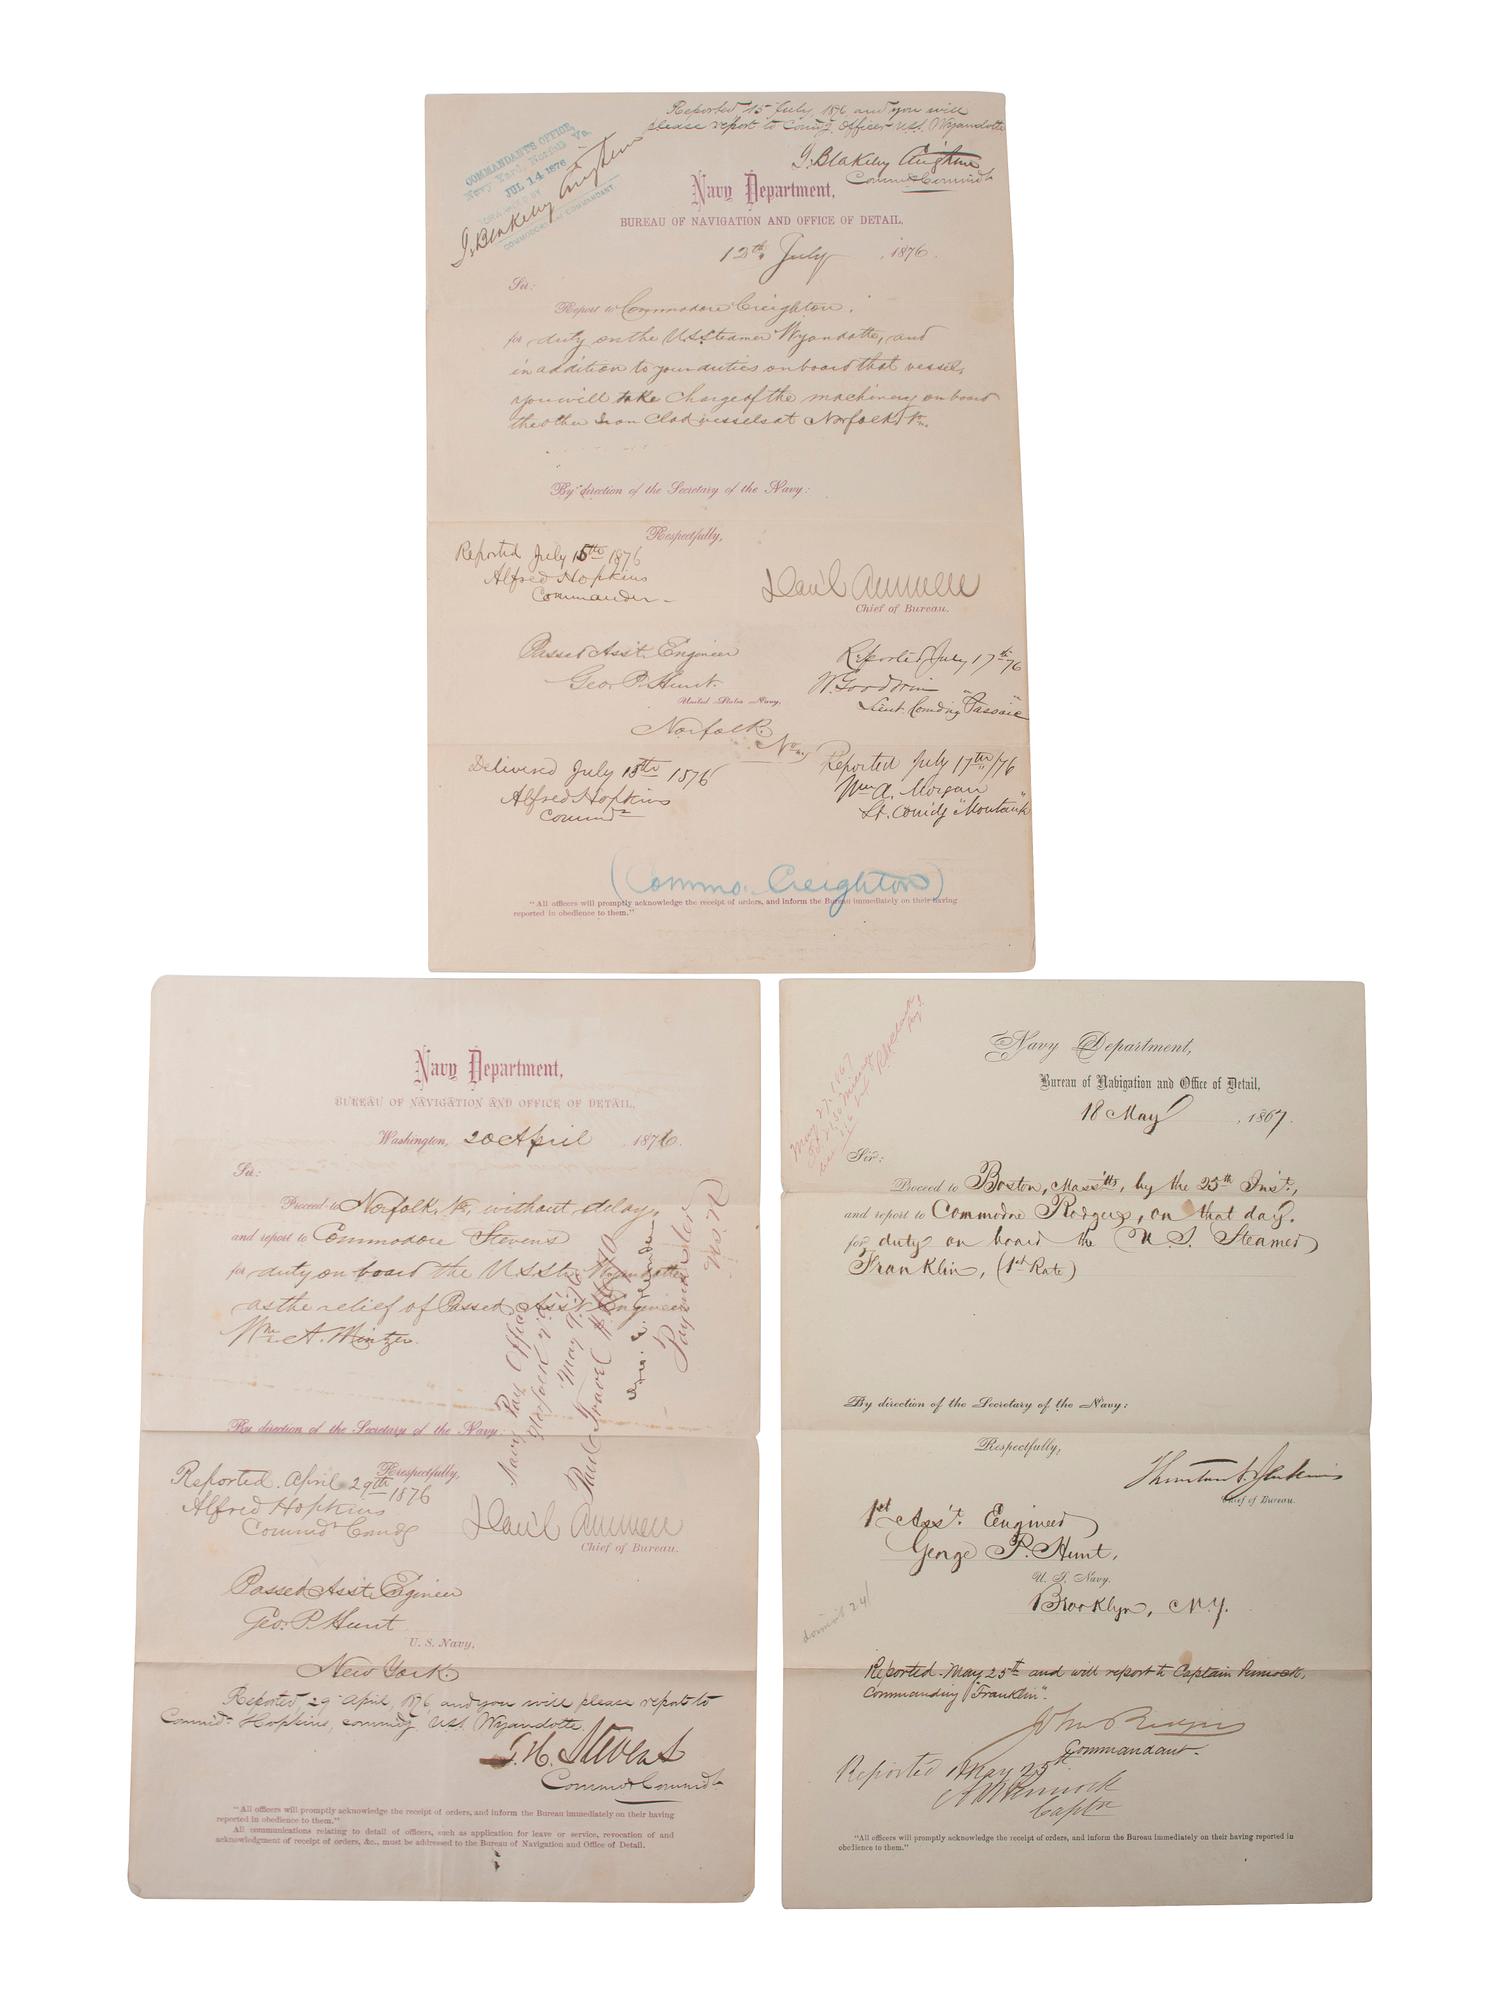 Reported 15 July, 1876 and you will
please report to Com'g. Officer U.S.S. Wyandotte
J. Blakeley Creighton
Commo & Commd't
COMMANDANT'S OFFICE,
Navy Yard, Norfolk Va.
JUL 14 1876
J. Blakeley Creighton
COMMODORE COMMANDANT.
Navy Department,
BUREAU OF NAVIGATION AND OFFICE OF DETAIL.
12th July , 1876.
Sir:
Report to Commodore Creighton.
for duty on the U.S. Steamer Wyandotte, and
in addition to your duties on board that vessel,
you will take charge of the machinery on board
the other Iron Clad vessels at Norfolk, Va.
By direction of the Secretary of the Navy:
Respectfully,
Dan'l Ammen
Chief of Bureau.
Reported July 15th 1876
Alfred Hopkins
Commander
Passed Asst. Engineer
Geo. P. Hunt.
United States Navy,
Norfolk.
Va.
Reported July 17th 76
W. Goodwin
Lieut Comding "Passaic"
Delivered July 15th 1876
Alfred Hopkins
Commdr
Reported July 17th/76
Wm A. Morgan
Lt. Comdg "Montauk"
(Commo. Creighton)
"All officers will promptly acknowledge the receipt of orders, and inform the Bureau immediately on their having
reported in obedience to them."
Navy Department,
BUREAU OF NAVIGATION AND OFFICE OF DETAIL,
Washington, 20 April , 1876.
Sir:
Proceed to Norfolk, Va, without delay,
and report to Commodore Stevens
for duty on board the U.S. Str. Wyandotte
as the relief of Passed Ass't Engineer
Wm A. Mintzer.
By direction of the Secretary of the Navy.
Respectfully,
Dan'l Ammen
Chief of Bureau.
Reported April 29th 1876
Alfred Hopkins
Commdr Comdg
Navy Pay Office
Norfolk Va
May 9. 76
Paid Travel
Paymaster
U.S.N
Passed Asst. Engineer
Geo. P. Hunt
U. S. Navy,
New York.
Reported 29 April, 1876, and you will please report to
Commdr. Hopkins, commdg U.S.S. Wyandotte.
T. H. Stevens
Commo & Commd't
"All officers will promptly acknowledge the receipt of orders, and inform the Bureau immediately on their having
reported in obedience to them."
All communications relating to detail of officers, such as application for leave or service, revocation of and
acknowledgment of receipt of orders, &c., must be addressed to the Bureau of Navigation and Office of Detail.
May 27. 1867
Navy Department,
Bureau of Navigation and Office of Detail,
18 May , 1867.
Sir:
Proceed to Boston, Masstts, by the 25th Inst.,
and report to Commodore Rodgers, on that day.
for duty on board the U. S. Steamer
Franklin, (1st Rate)
By direction of the Secretary of the Navy:
Respectfully,
Thornton A. Jenkins
Chief of Bureau.
1st Ass't. Engineer
George P. Hunt,
U. S. Navy.
Brooklyn, N.Y.
Reported May 25th and will report to Captain Pennock,
commanding "Franklin".
John Rodgers
Commandant.
Reported May 25th
A M Pennock
Captn
"All officers will promptly acknowledge the receipt of orders, and inform the Bureau immediately on their having reported in
obedience to them."